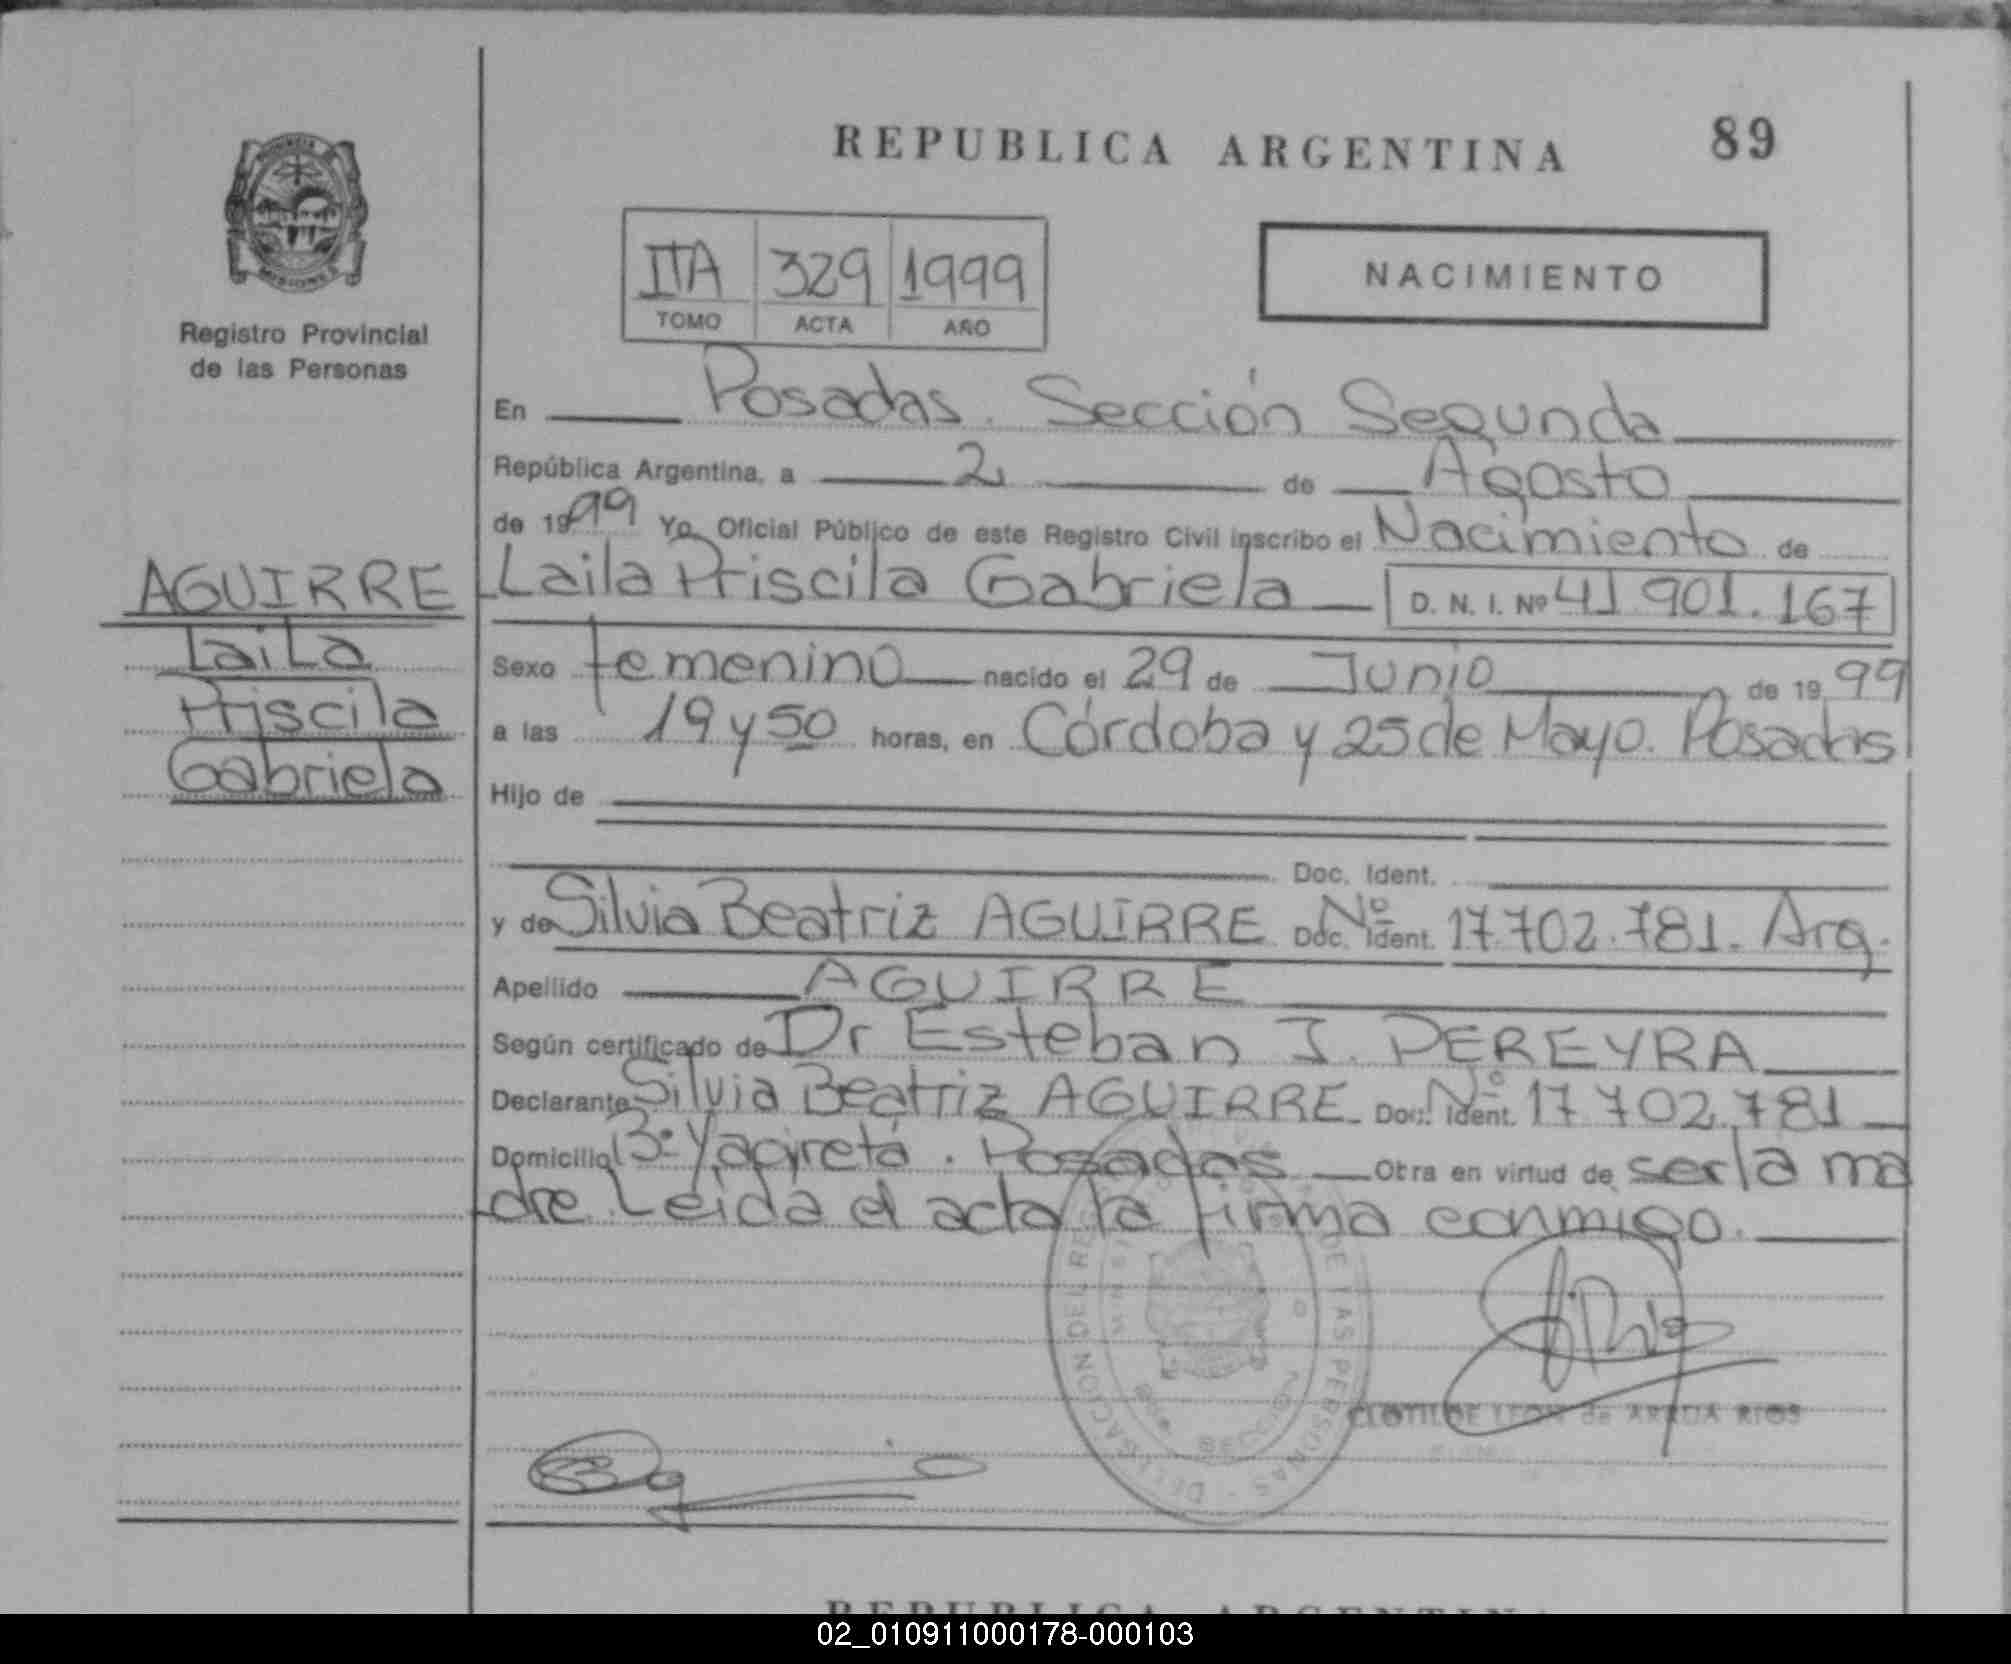 REPUBLICA ARGENTINA 89
PROVINCIA
MISIONES
Registro Provincial
de las Personas
IIA 329 1999
TOMO ACTA AÑO
NACIMIENTO
En Posadas. Sección Segunda
República Argentina, a 2 de Agosto
de 1999 Yo, Oficial Público de este Registro Civil inscribo el Nacimiento de
AGUIRRE
Laila
Priscila
Gabriela
Laila Priscila Gabriela D. N. I. Nº 41.901.167
Sexo femenino nacido el 29 de Junio de 1999
a las 19 y 50 horas, en Córdoba y 25 de Mayo. Posadas
Hijo de
Doc. Ident.
y de Silvia Beatriz AGUIRRE Doc. Ident. Nº 17.702.781. Arg.
Apellido AGUIRRE
Según certificado de Dr Esteban J. PEREYRA
Declarante Silvia Beatriz AGUIRRE Doc. Ident. Nº 17.702.781
Domicilio Bº Yacireta. Posadas Obra en virtud de ser la ma
dre. Leida el acta la firma conmigo.
DE LAS PERSONAS
CLOTILDE LEON de ARRUA RIOS
REPUBLICA ARGENTINA
02_010911000178-000103